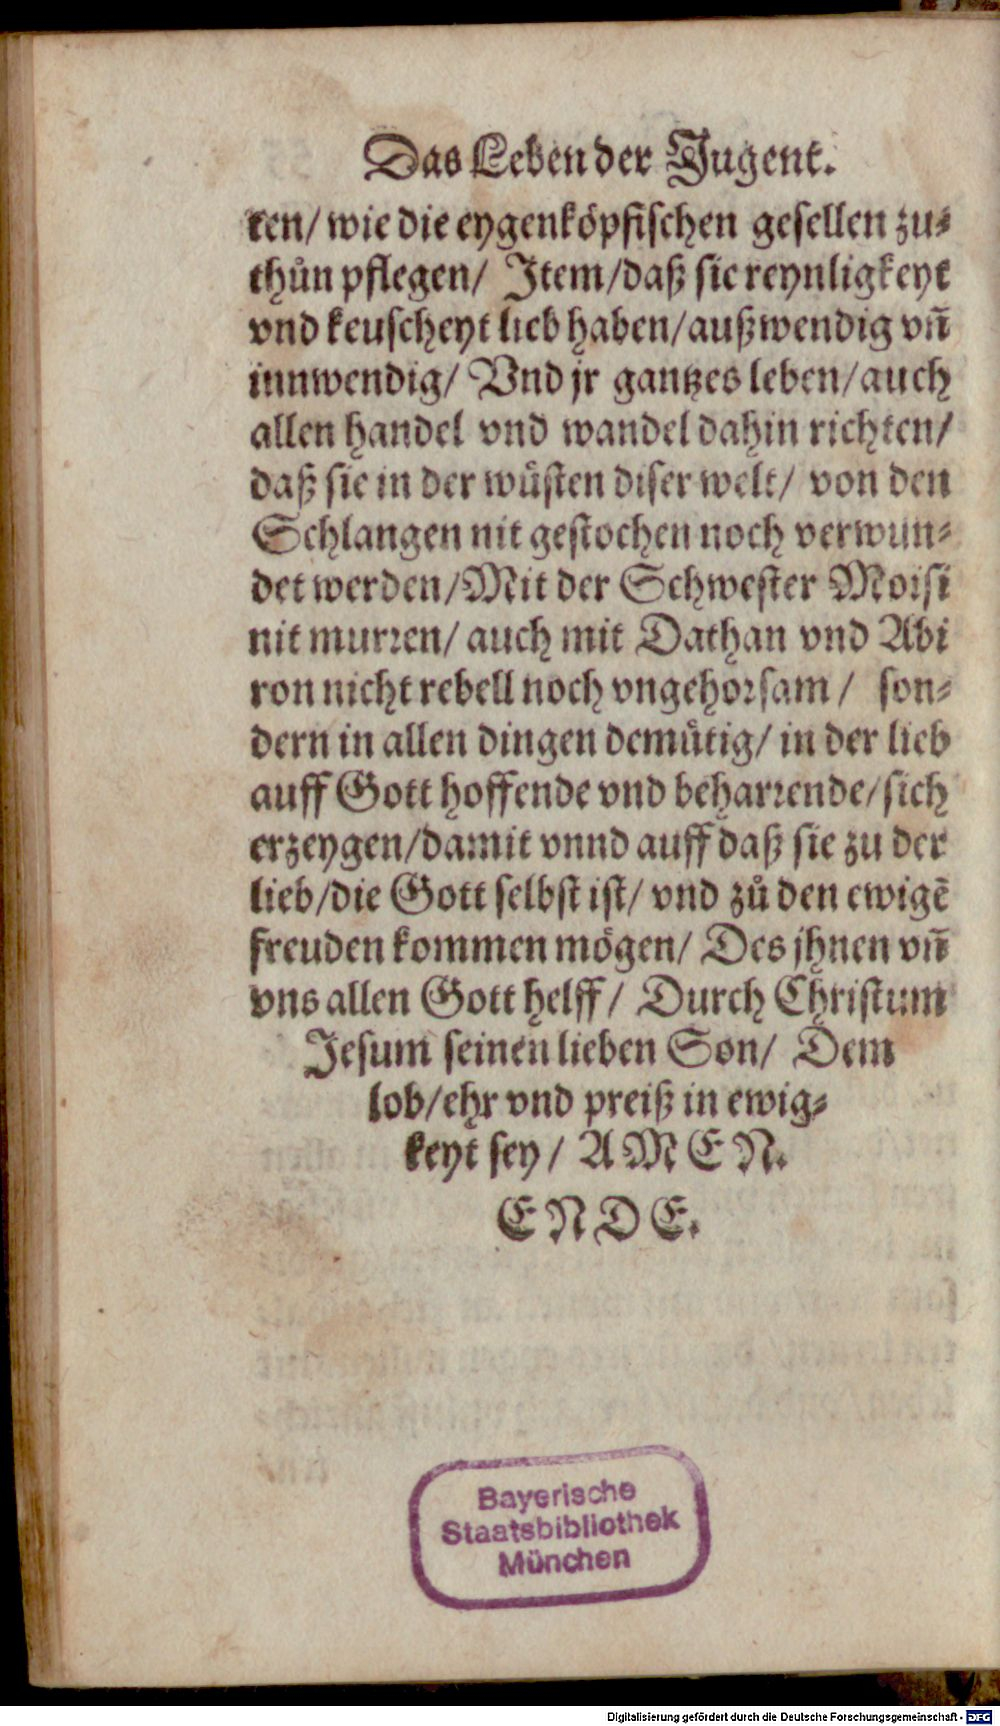 Das Leben der Jugent.
ten/ wie die eygenköpfischen gesellen zu-
thůn pflegen/ Item/daß sie reynligkeyt
vnd keuscheyt lieb haben/außwendig vñ
innwendig/ Vnd jr gantzes leben/auch
allen handel vnd wandel dahin richten/
daß sie in der wůsten diser welt/ von den
Schlangen nit gestochen noch verwun-
det werden/Mit der Schwester Moisi
nit murren/ auch mit Dathan vnd Abi
ron nicht rebell noch vngehorsam/ son-
dern in allen dingen demůtig/ in der lieb
auff Gott hoffende vnd beharrende/sich
erzeygen/damit vnnd auff daß sie zu der
lieb/die Gott selbst ist/ vnd zů den ewigẽ
freuden kommen mögen/ Des jhnen vñ
vns allen Gott helff/ Durch Christum
Jesum seinen lieben Son/ Dem
lob/ehr vnd preiß in ewig-
keyt sey/ AMEN.
ENDE.
Bayerische
Staatsbibliothek
München
Digitalisierung gefördert durch die Deutsche Forschungsgemeinschaft - DFG